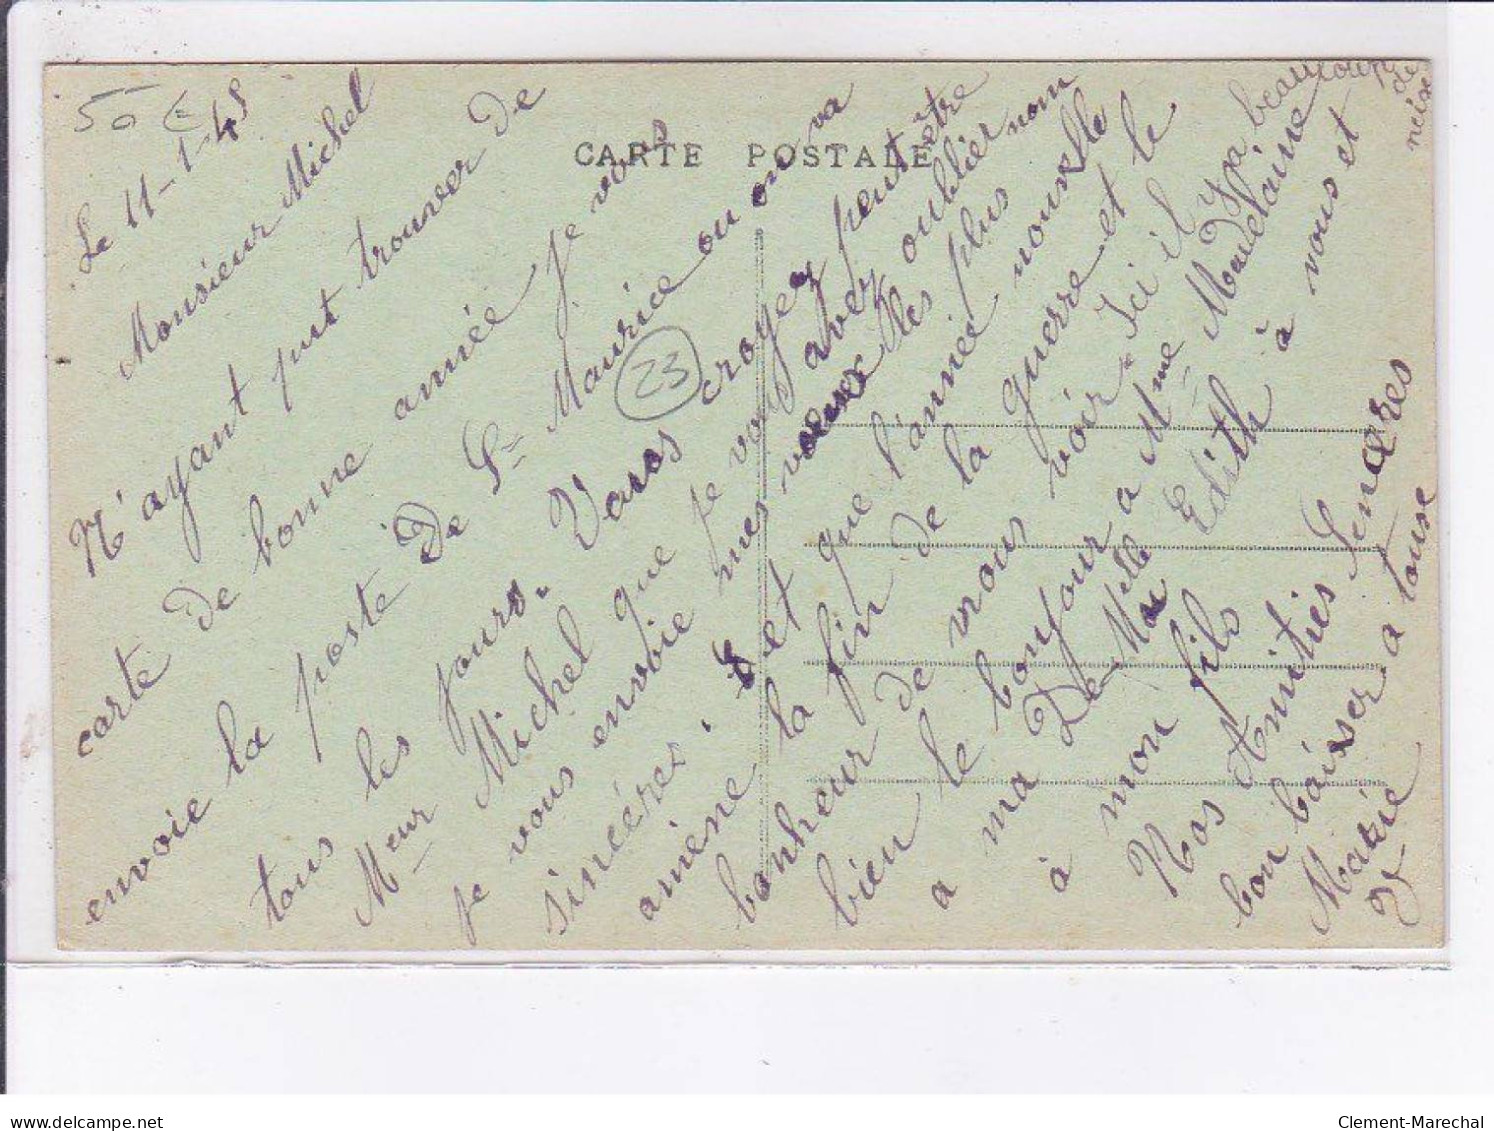 50 €
Le 11-1-45
CARTE POSTALE
Monsieur Michel
N'ayant put trouver de
carte de bonne année je vous
envoie la poste de St Maurice ou on va
tous les jours. Vous croyez peut être
Mr Michel que je vous avez oublier nom
je vous envoie mes voeux les plus
sincères. et que l'année nouvelle
amène la fin de la guerre et le
bonheur de vous voir. Ici il y a beaucoup
de neise
bien le bonjour a Mme Madelaine
a ma De Melle Edith à vous et
à mon fils
Nos Amitiés Sencères
bon baiser a touse
Marie
V
23
delcampe.net
Clement-Marechal